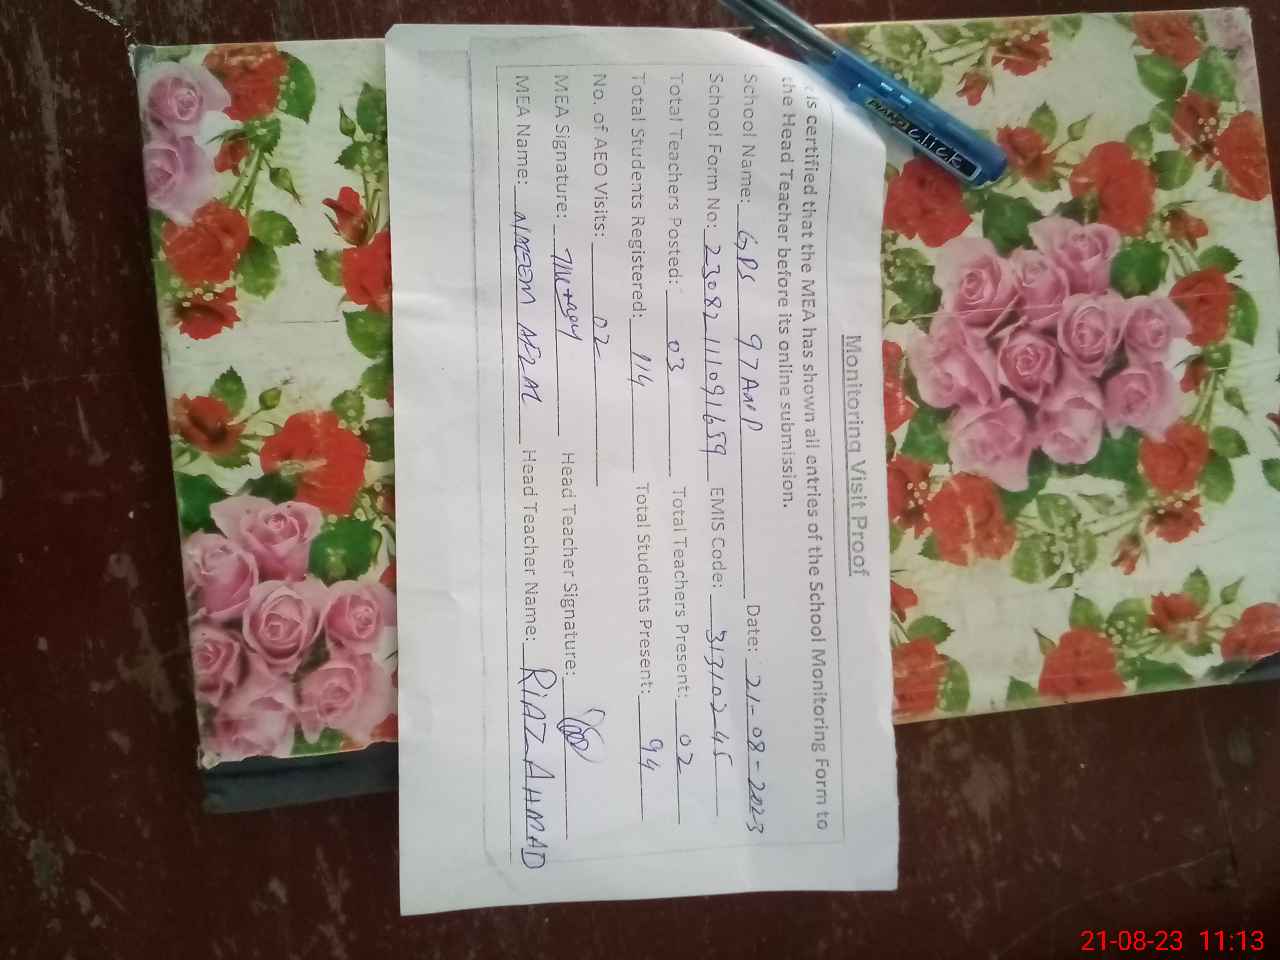 Monitoring Visit Proof
is certified that the MEA has shown all entries of the School Monitoring Form to
the Head Teacher before its online submission.
School Name: GPS 97 Date: 21-08-2023
School Form No: 23082111091659 EMIS Code: 31310245
Total Teachers Posted: 03 Total Teachers Present: 02
Total Students Registered: 114 Total Students Present: 94
No. of AEO Visits: 02
MEA Signature: Head Teacher Signature:
MEA Name: NAEEM Head Teacher Name: RIAZ AHMAD
PIANO click
21-08-23 11:13